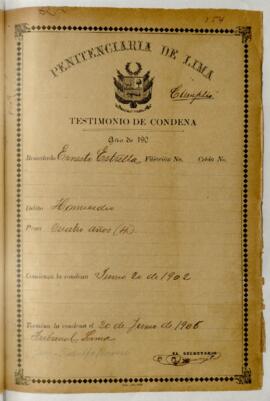 154
PENITENCIARIA DE LIMA
Cumplió
TESTIMONIO DE CONDENA
Año de 190
Rematado Ernesto Estrella Filiación No. Celda No.
Delito Homicidio
Pena Cuatro años (4)
Comienza la condena Junio 20 de 1902
Termina la condena el 20 de Junio de 1906
Tribunal Lima
EL SECRETARIO